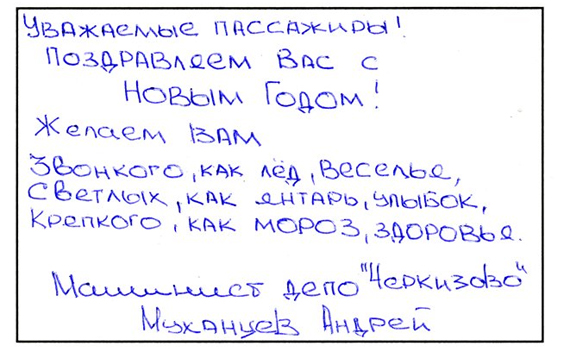 Уважаемые пассажиры!
Поздравляем Вас с
Новым Годом!
Желаем Вам
Звонкого, как лёд, веселья,
Светлых, как янтарь, улыбок,
Крепкого, как мороз, здоровья.
Машинист депо "Черкизово"
Муханцев Андрей